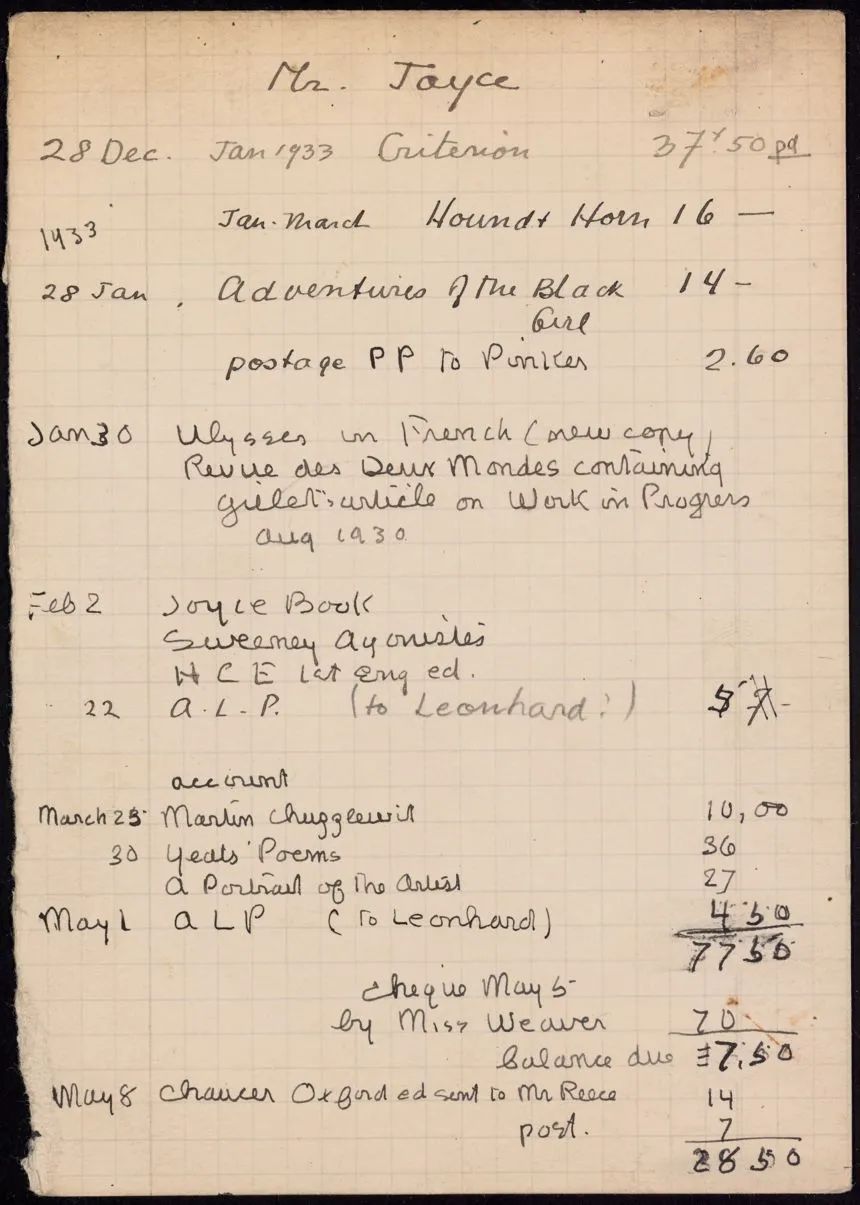 Mr. Joyce
28 Dec. Jan 1933 Criterion 37f.50 pd
1933 Jan-March Hound & Horn 16 —
28 Jan, Adventures of the Black 14 -
Girl
postage PP to Pinker 2.60
Jan 30 Ulysses in French (new copy)
Revue des Deux Mondes containing
Gillet's article on Work in Progress
Aug 1930
Feb 2 Joyce Book
Sweeney Agonistes
H C E 1st Eng ed.
22 A.L.P. (to Leonhard?)
account
March 25 Martin Chugglewit 10,00
30 Yeats' Poems 36
A Portrait of the Artist 27
May 1 A L P (to Leonhard) 4 50
77 50
cheque May 5
by Miss Weaver 70
balance due 7,50
May 8 Chaucer Oxford ed sent to Mr Reece 14
post. 7
28 50